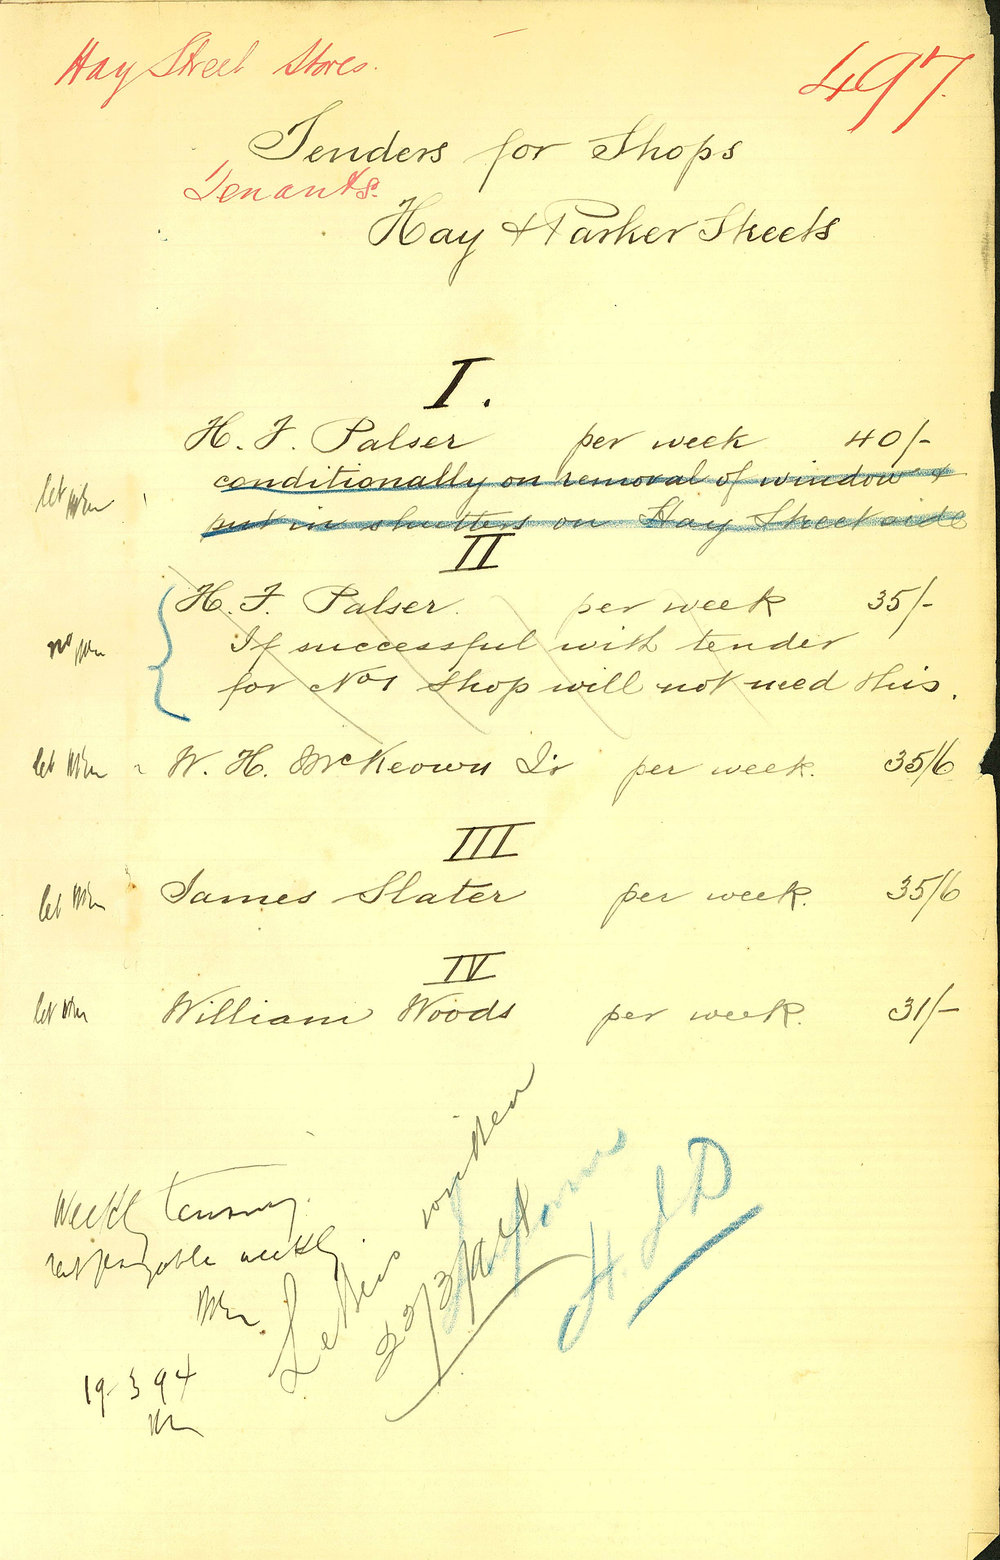 Hay Street Stores.
497.
Tenders for Shops
Tenants.
Hay & Parker Streets
I.
H. F. Palser per week 40/-
conditionally on removal of window &
put in shutters on Hay Street side
let
II
H. F. Palser. per week 35/-
If successful with tender
for No 1 shop will not need this.
no
let W. H. McKeown Jr per week. 35/6
III
let James Slater per week. 35/6
IV
let William Woods per week. 31/-
Weekly tenancy.
rent payable weekly
19-3 94
Letters written
22/3/94